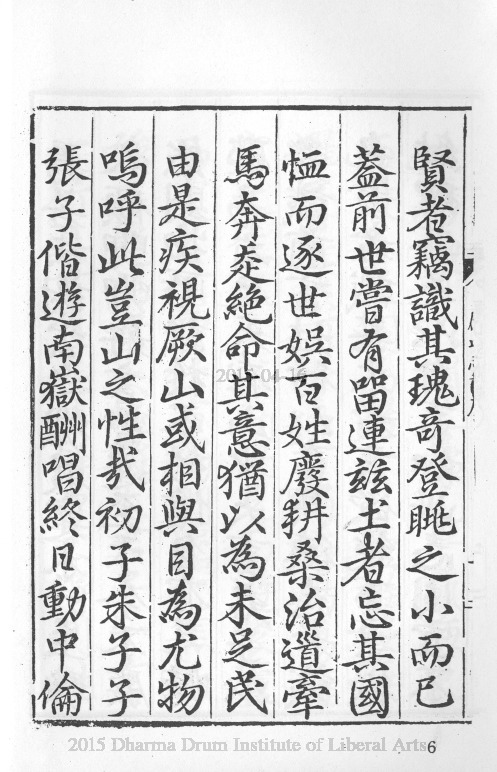 賢者竊識其瑰奇登眺之小而已
蓋前世嘗有留連兹土者忘其國
恤而逐世娛百姓廢耕桑治道牽
馬奔走絕命其意猶以為未足民
由是疾視厥山或相與目為尤物
嗚呼此豈山之性哉初子朱子子
張子偕遊南嶽酬唱終日動中倫
2015-04-16
2015 Dharma Drum Institute of Liberal Arts
6